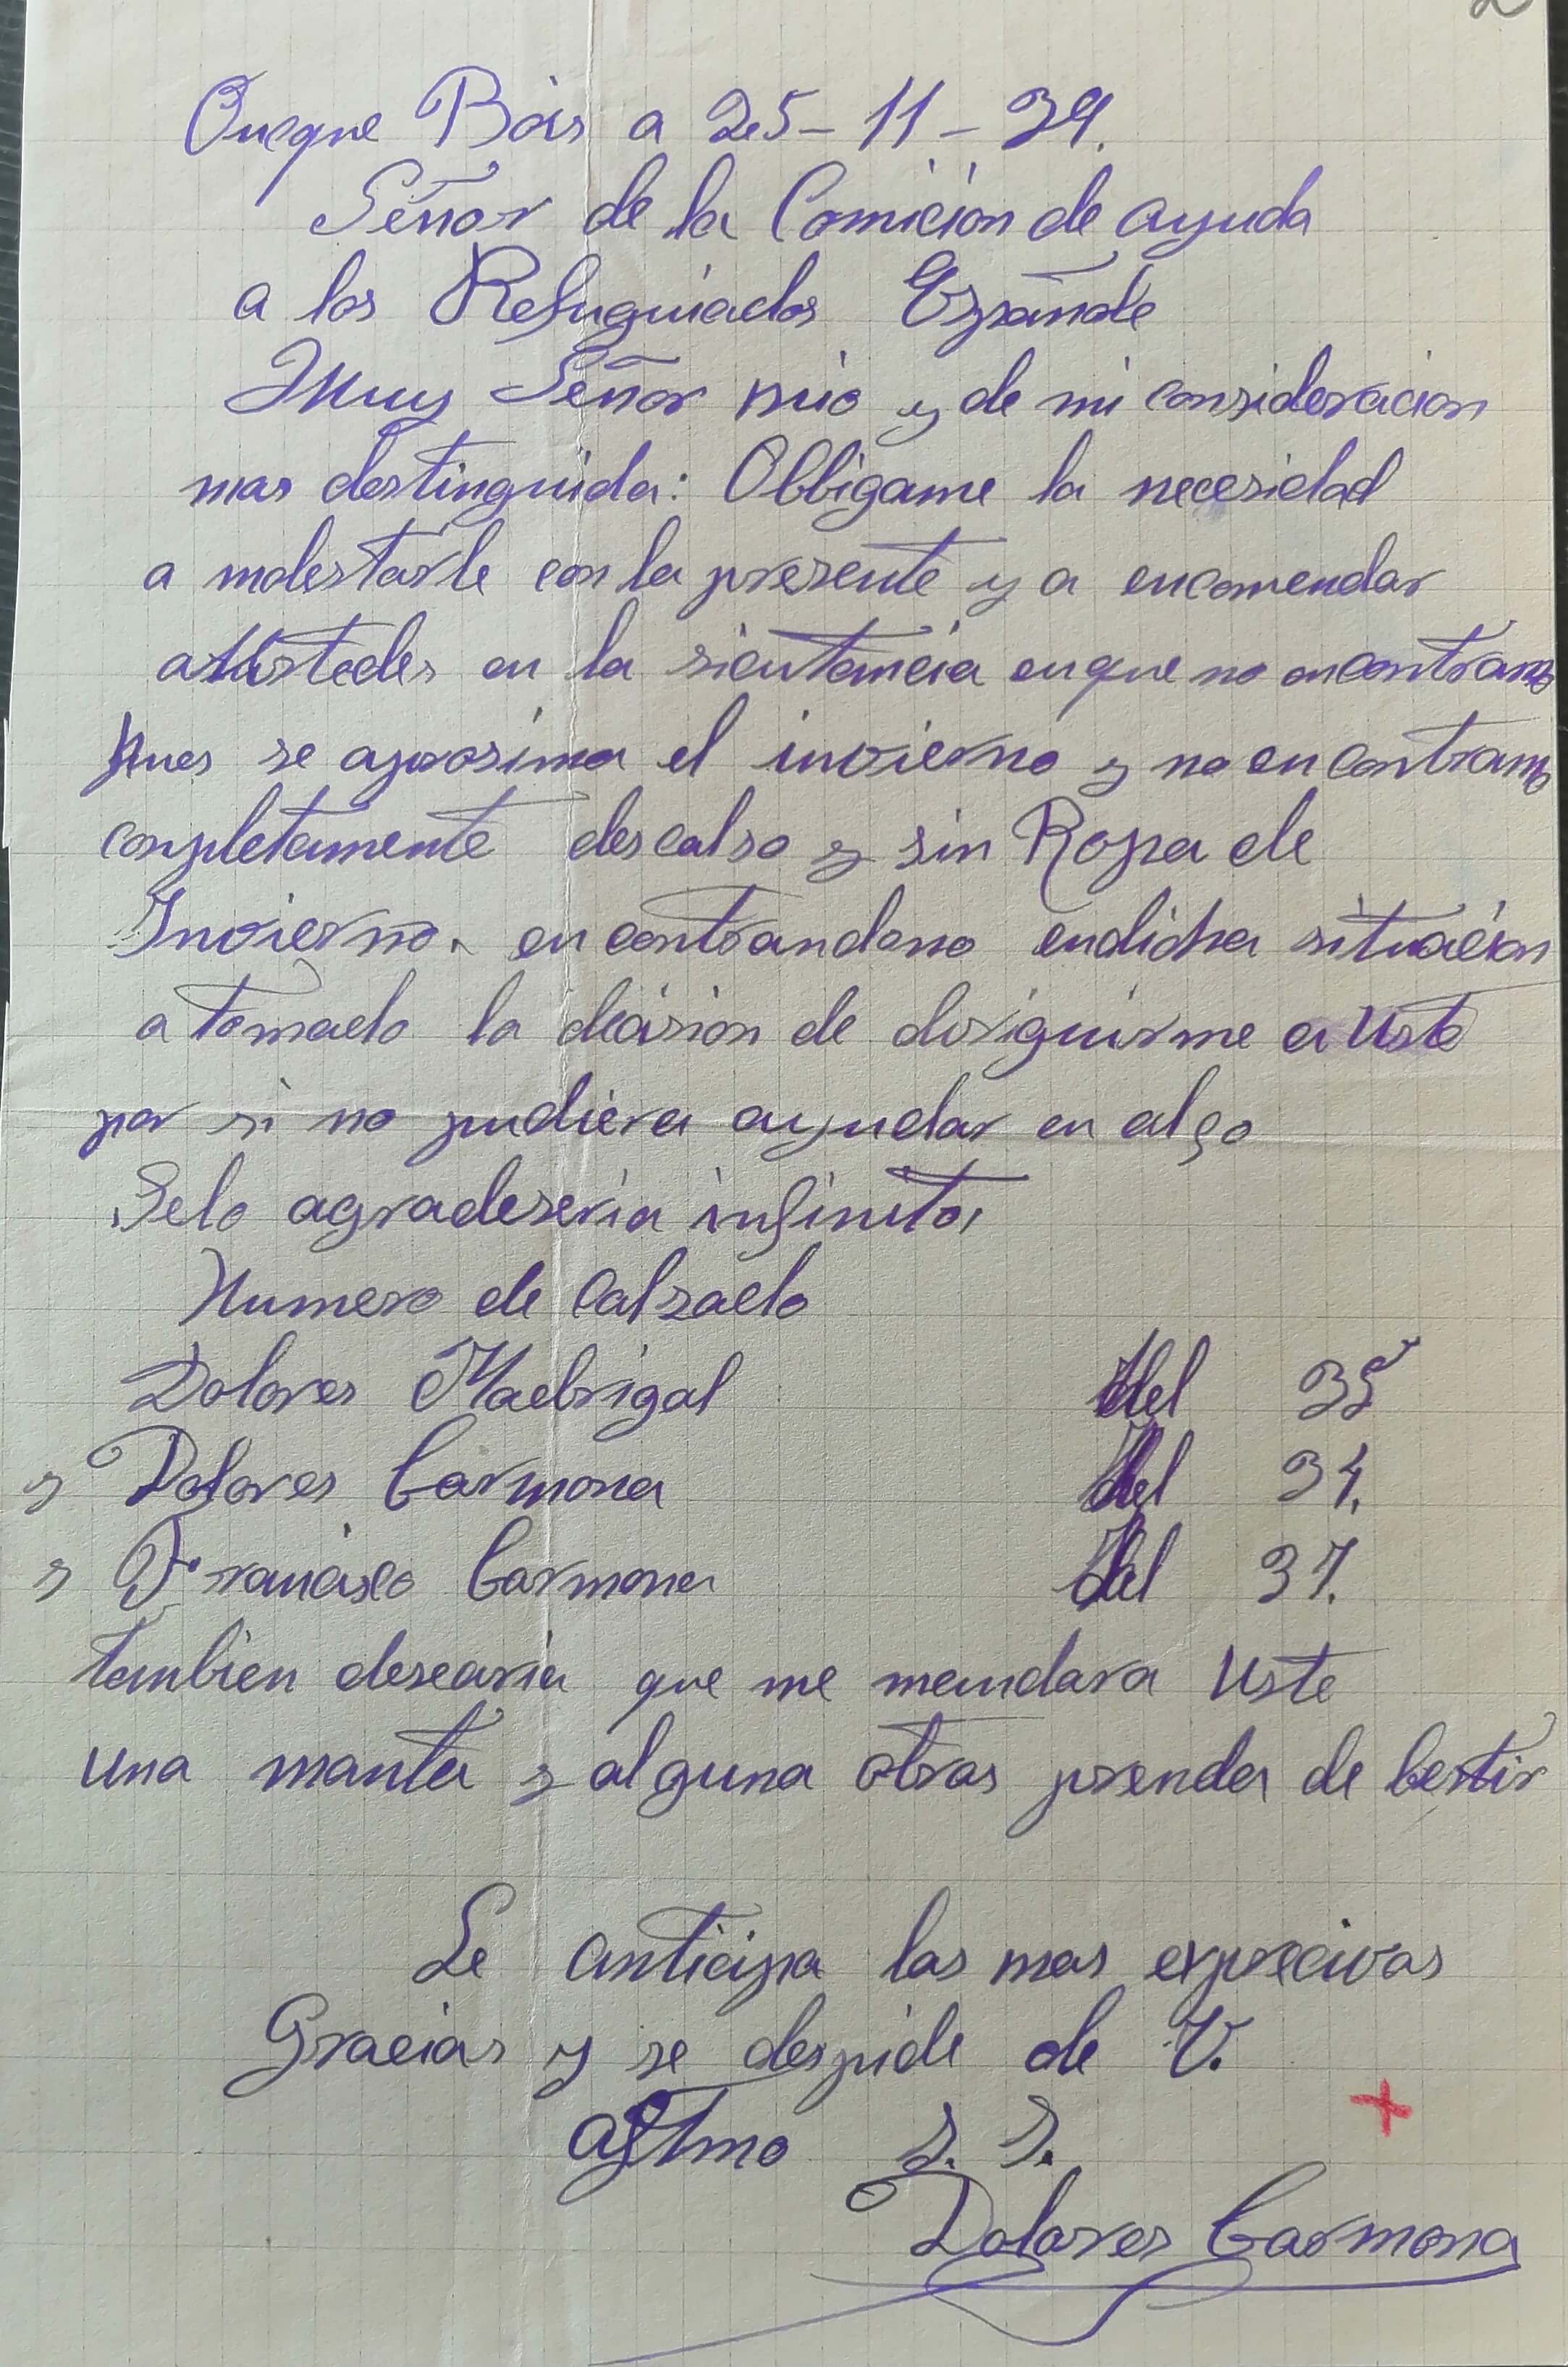 Oucque Bois a 25-11-39.
Señor de la Comicion de ayuda
a los Refuguiados Españole
Muy Señor mio y de mi consideracion
mas destinguida: Obligame la necesidad
a molestarle con la presente y a encomendar
a Ustedes en la sicutancia en que no encontramo
pues se aprosima el invierno y no encontramo
conpletamente descalso y sin Ropa de
Invierno. encontrandono en dicha situacion
a tomado la dicision de diriguirme a Uste
por si no pudiera ayudar en algo
Se lo agradeseria infinito,
Numero de Calzado
Dolores Madrigal del 35
y Dolores Carmona del 34.
y Francisco Carmona del 37.
tambien desearia que me mandara Uste
una manta y alguna otras prenda de bestir
Le anticipa las mas exprecivas
Gracias y se despide de V.
aftmo s. s.
Dolores Carmona